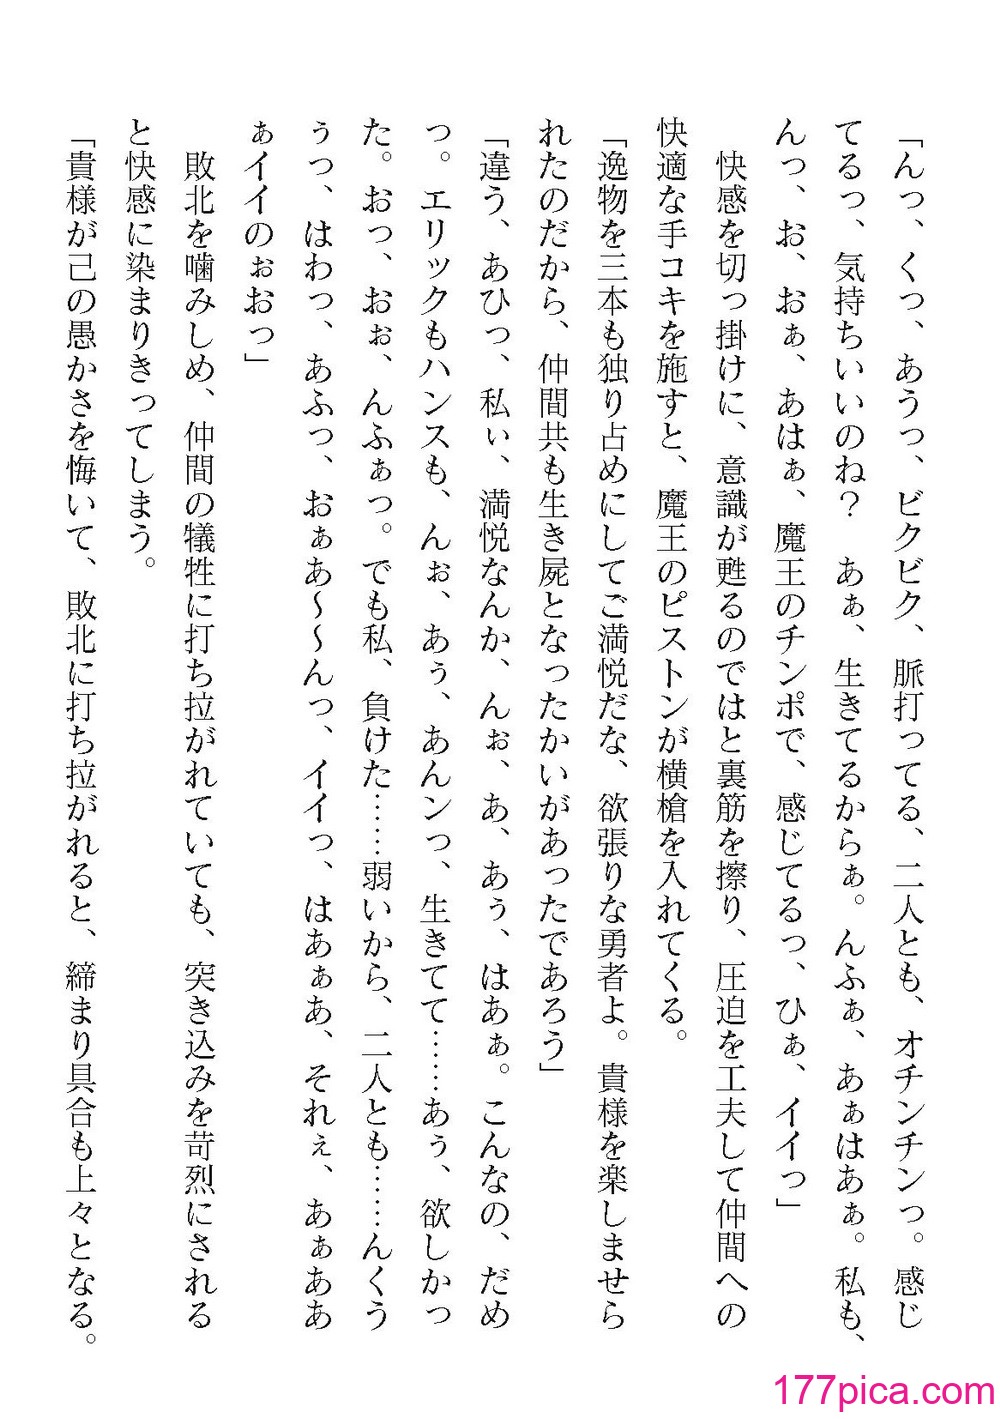 「んっ、くっ、あうっ、ビクビク、脈打ってる、二人とも、オチンチンっ。感じ
てるっ、気持ちいいのね？　あぁ、生きてるからぁ。んふぁ、あぁはあぁ。私も、
んっ、お、おぁ、あはぁ、魔王のチンポで、感じてるっ、ひぁ、イイっ」
　快感を切っ掛けに、意識が甦るのではと裏筋を擦り、圧迫を工夫して仲間への
快適な手コキを施すと、魔王のピストンが横槍を入れてくる。
「逸物を三本も独り占めにしてご満悦だな、欲張りな勇者よ。貴様を楽しませら
れたのだから、仲間共も生き屍となったかいがあったであろう」
「違う、あひっ、私ぃ、満悦なんか、んぉ、あ、あぅ、はあぁ。こんなの、だめ
っ。エリックもハンスも、んぉ、あぅ、あんンっ、生きてて……あぅ、欲しかっ
た。おっ、おぉ、んふぁっ。でも私、負けた……弱いから、二人とも……んくう
ぅっ、はわっ、あふっ、おぁあ～～んっ、イイっ、はあぁあ、それぇ、あぁああ
ぁイイのぉおっ」
　敗北を噛みしめ、仲間の犠牲に打ち拉がれていても、突き込みを苛烈にされる
と快感に染まりきってしまう。
「貴様が己の愚かさを悔いて、敗北に打ち拉がれると、締まり具合も上々となる。
177pica.com